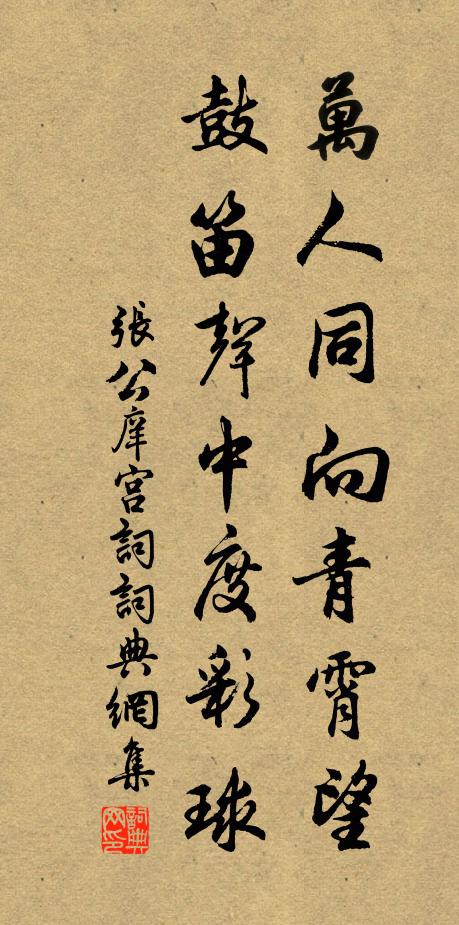 萬人同向青霄望
鼓笛聲中度彩球
張公庠宫詞詞典網集
詞典網印